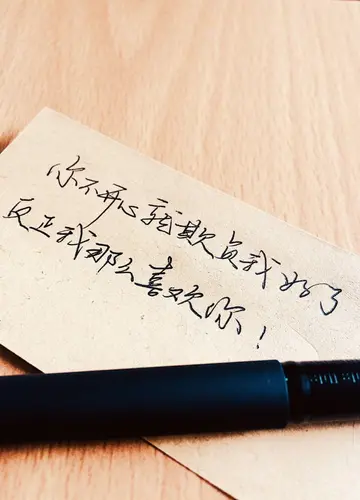 你不开心就欺负我好了
反正我那么喜欢你！